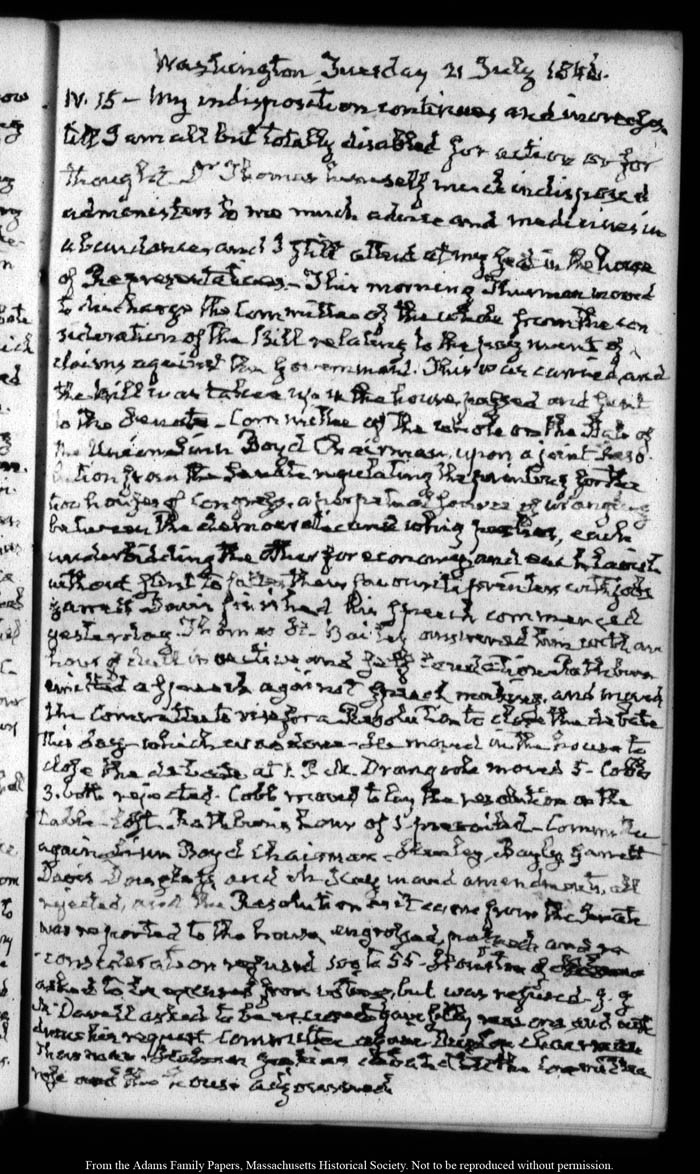 Washington Tuesday 21 July 1846.
IV. 15 — My indisposition continues and increases
till I am all but totally disabled for action or for
thought. Dr Thomas himself much indisposed
administers to me much advice and medicines in
abundance, and I still attend at my seat in the house
of Representatives — This morning Thurman moved
to discharge the Committee of the whole from the con
sideration of the Bill relating to the payment of
claims against the Government. This was carried, and
the bill was taken up in the house, passed and sent
to the Senate — Committee of the whole on the State of
the Union Linn Boyd Chairman, upon a joint Reso
lution from the Senate regulating the printing for the
two houses of Congress, a perpetual source of wrangling
between the democratic and whig parties, each
underbidding the other for economy, and each
without stint to fatten their favourite printers with jobs
Garrett Davis finished his speech commenced
yesterday. Thomas H. Bayly answered him with an
hour of dull invective and Rathbun
emitted a speech against speech making, and moved
the Committee to rise for a Resolution to close the debate
this day — which was done — He moved in the house to
close the debate at 1. P.M. Dromgoole moved 5 — Cobb
3. both rejected. Cobb moved to lay the resolution on the
table — lost. Rathbun's hour of 1 prevailed — Committee
again Linn Boyd Chairman — Bayly Garrett
Davis Douglass and McKay moved amendments, all
rejected, and the Resolution as it came from the Senate
was reported to the house, engrossed, passed and re
-consideration refused 109 to 55 — Houston of
asked to be excused from voting, but was refused — J. J.
McDowell asked to be excused
his request. Committee again chairman

rose and the house adjourned
From the Adams Family Papers, Massachusetts Historical Society. Not to be reproduced without permission.